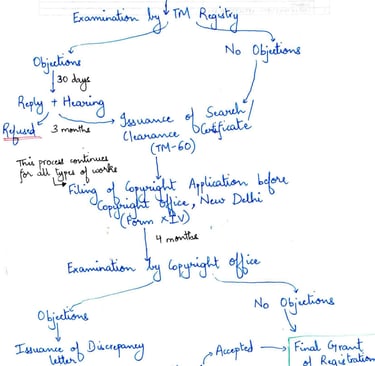 Examination by TM Registry
Objections
No Objections
30 days
Reply + Hearing
Issuance of Search/
Clearance Certificate/
(TM-60)
Refused
3 months
This process continues
for all types of works
Filing of Copyright Application before
Copyright Office, New Delhi
(Form XIV)
4 months
Examination by Copyright Office
Objections
No Objections
Issuance of Discrepancy
letter
Accepted
Final Grant
of Registration